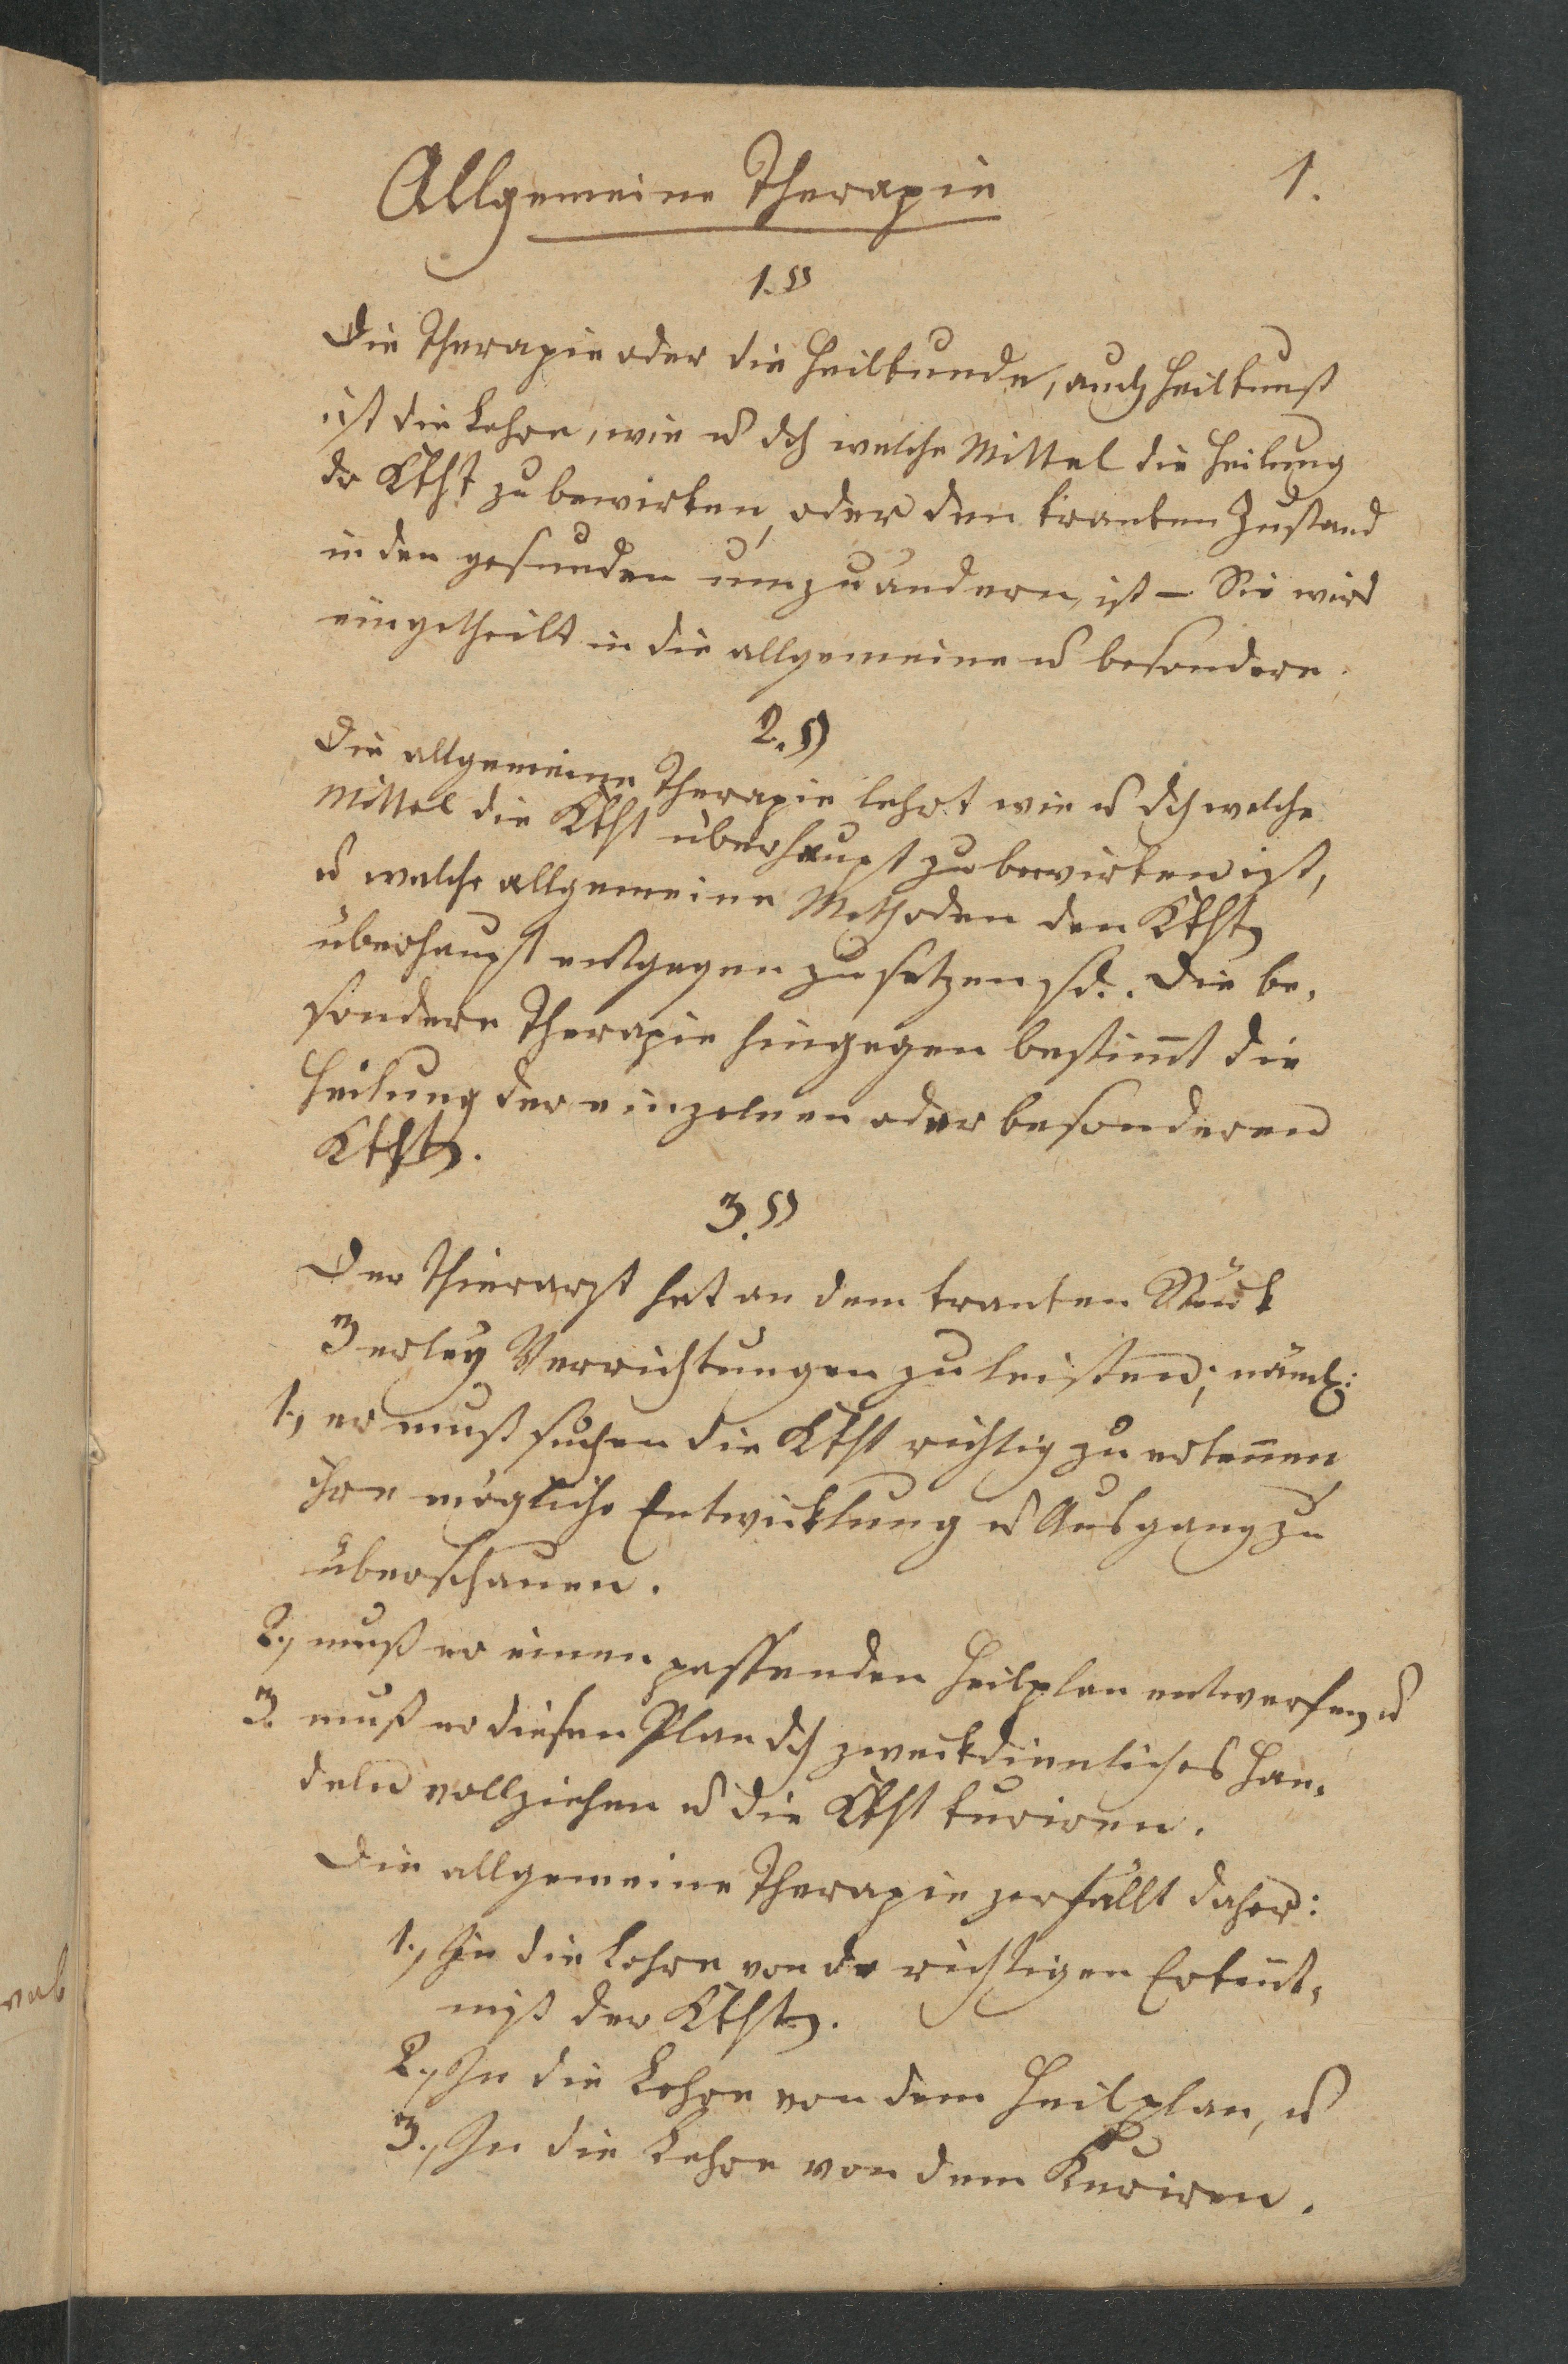 Allgemeine Therapie
1.
1. §
Die Therapie oder die Heilkunde, auch Heilkunst
ist die Lehre, wie u dch welche Mittel die Heilung
dr Kkht zu bewirken, oder den kranken Zustand
in den gesunden umzuändern, ist – Sie wird
eingetheilt in die allgemeine u besondere.
2. §
Die allgemeine Therapie lehrt wie u dch welche
Mittel die Kkht überhaupt zu bewirken ist,
u welche allgemeine Methoden den Kkhtn
überhaupt entgegen zu setzen sd. Die be-
sondere Therapie hingegen bestim̄t die
Heilung der einzelnen oder besonderen
Kkhtn.
3. §
Der Thierarzt hat an dem kranken Stück
3 erley Verrichtungen zu leisten; näml:
1., er muß suchen die Kkht richtig zu erken̄en,
ihre mögliche Entwicklung u Ausgang zu
überschauen.
2., muß er einen passenden Heilplan entwerfen, u
3. muß er diesen Plan dch zweckdienliches Han-
deln vollziehen u die Kkht kuriren.
Die allgemeine Therapie zerfällt daher:
1., In die Lehre von dr richtigen Erken̄t-
niß der Kkhtn.
2., In die Lehre von dem Heilplan, u
3., In die Lehre von dem Kuriren.